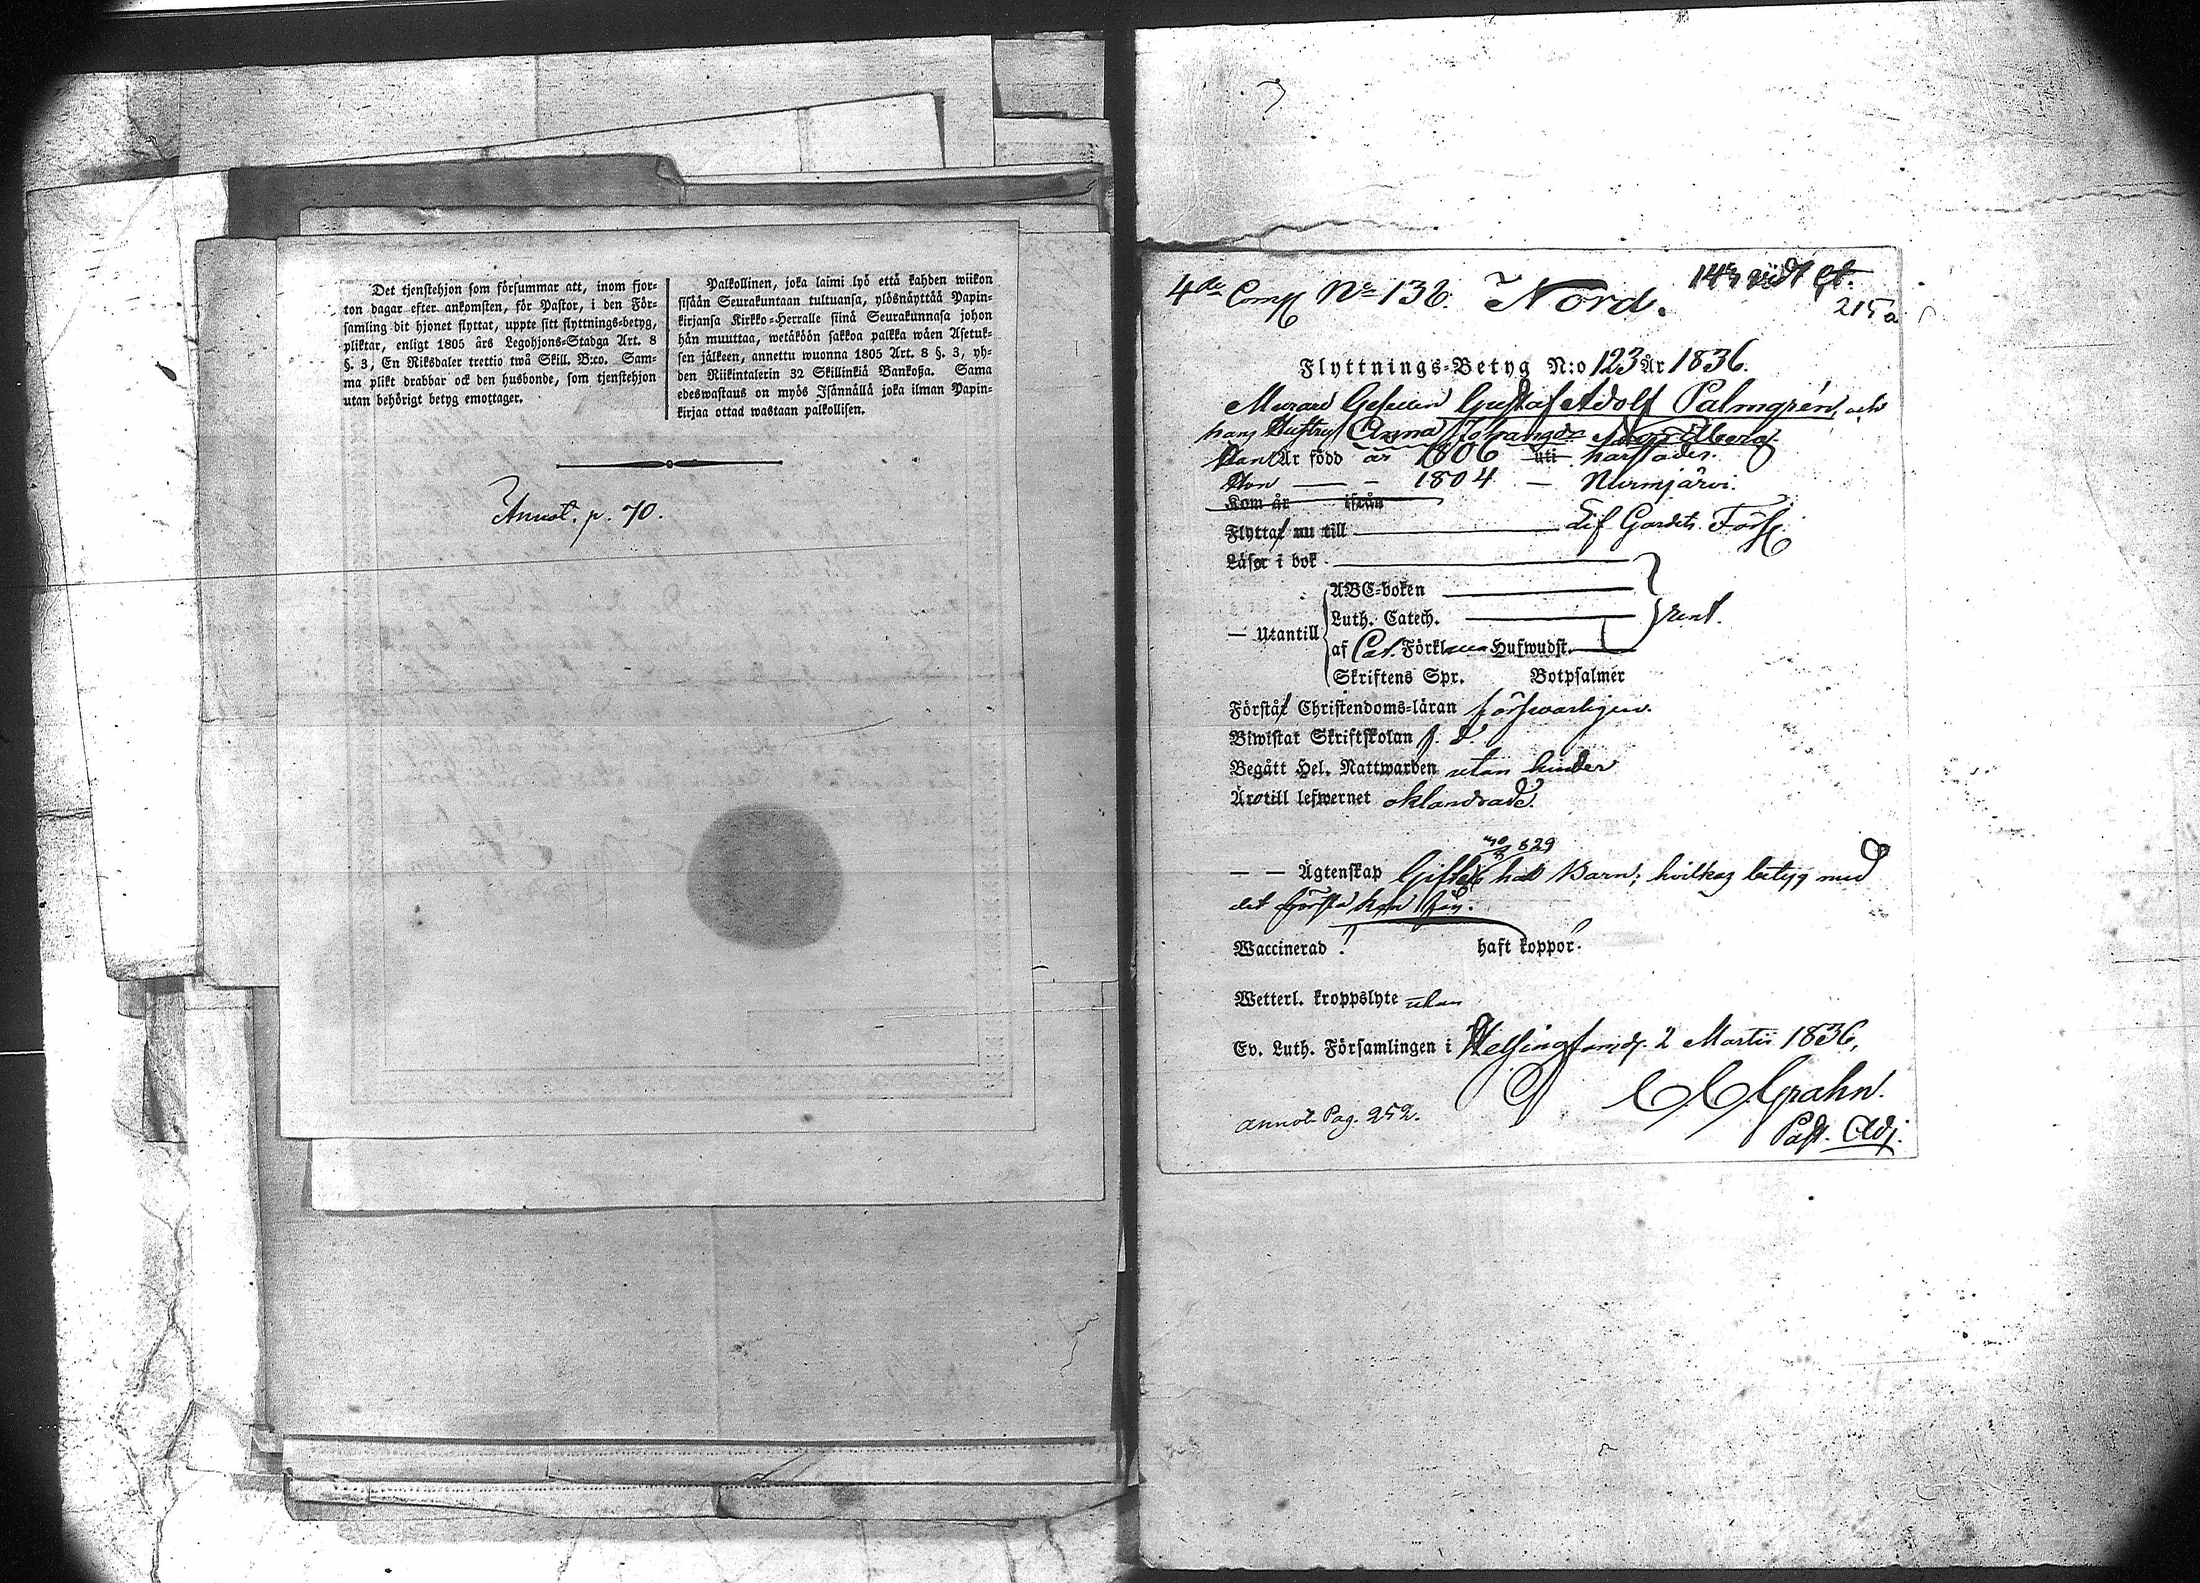 Det tjenstehjon som försummar att, inom fjor-
ton dagar efter ankomsten, för Pastor, i den För-
samling dit hjonet flyttat, uppte sitt flyttnings-betyg,
pliktar, enligt 1805 års Legohjons-Stadga Art. 8
§. 3, En Riksdaler trettio twå Skill. B:co. Sam-
ma plikt drabbar ock den husbonde, som tjenstehjon
utan behörigt betyg emottager.
Palkollinen, joka laimi lyö että kahden wiikon
sisään Seurakuntaan tultuansa, ylösnäyttää Papin-
kirjansa Kirkko-Herralle siinä Seurakunnasa johon
hän muuttaa, wetäköön sakkoa palkka wäen Asetuk-
sen jälkeen, annettu wuonna 1805 Art. 8 §. 3, yh-
den Riikintalerin 32 Skillinkiä Bankoßa. Sama
edeswastaus on myös Isännällä joka ilman Papin-
kirjaa ottad wastaan palkollisen.
Annot. p. 70.
4de Comp N° 136. Nord.
215 a
Flyttnings-Betyg N:o 123 År 1836.
Murare Gesellen Gustaf Adolf Palmgrén, och
hans Hustru Anna
Han Är född år 1806 uti
Hon — - 1804 — Nurmjärvi.
Kom år ifrån
Flytta nu till Lif Gardets Förs
Läser i bok
ABE-boken
Luth. Catech. rent.
— Utantill
af Cat. Förkl Hufwudst.
Skriftens Spr. Botpsalmer
Förstå Christendoms-läran försvarligen.
Biwistat Skriftskolan
Begått Hel. Nattwarden utan hinder
Är till lefwernet oklandrade.
829
— — Ägtenskap Gifte har Barn; hvilkas betyg med
det första kan fås.
Waccinerad haft koppor.
Wetterl. kroppslyte utan
Ev. Luth. Församlingen i Helsingfors d. 2 Martii 1836,
C. C. Grahn.
Past. Adj.
annot. Pag. 252.